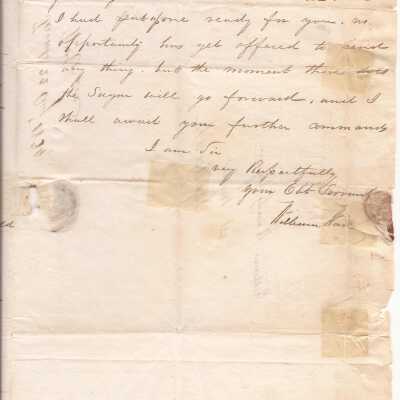 I had put
ready for you. no
opportunity has yet offered to send
any thing. but the moment there does
the Sugar will go forward, and I
shall await your further commands
I am Sir
very Respectfully
your Obt Servant
William